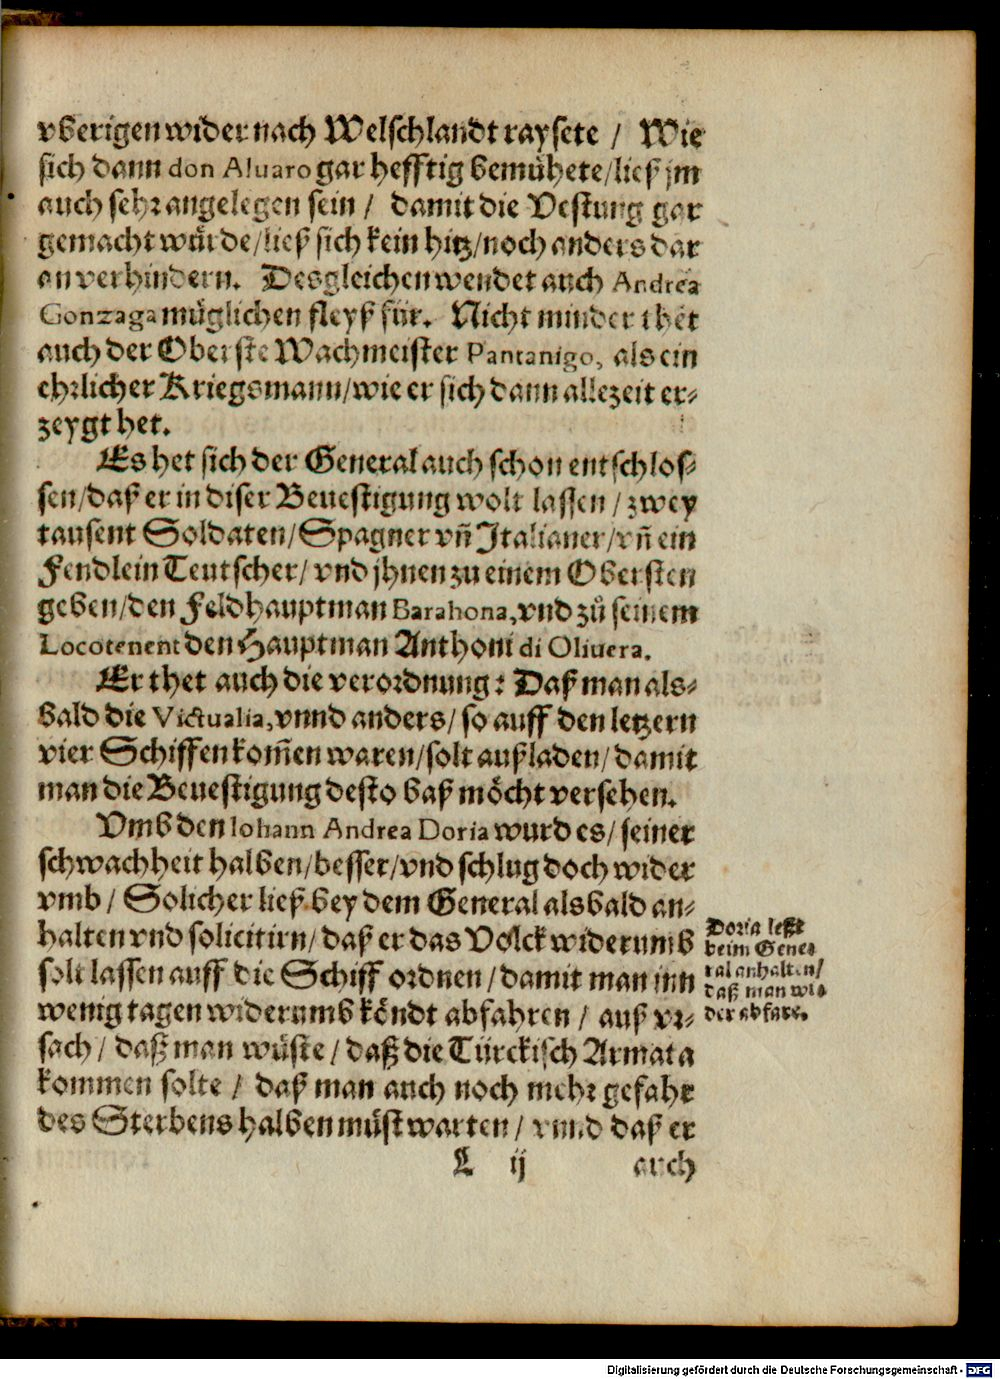 vberigen wider nach Welschlandt raysete / Wie
sich dann don Aluaro gar hefftig bemühete/ließ jm
auch sehr angelegen sein / damit die Vestung gar
gemacht würde/ließ sich kein hitz/noch anders dar
an verhindern. Desgleichen wendet auch Andrea
Gonzaga müglichen fleyß für. Nicht minder thet
auch der Oberste Wachmeister Pantanigo, als ein
ehrlicher Kriegsmann/wie er sich dann allezeit er-
zeygt het.
Es het sich der General auch schon entschlos-
sen/daß er in diser Beuestigung wolt lassen / zwey
tausent Soldaten/Spagner vñ Italianer/vñ ein
Fendlein Teutscher/ vnd jhnen zu einem Obersten
geben/den Feldhauptman Barahona,vnd zů seinem
Locotenent den Hauptman Anthoni di Oliuera.
Er thet auch die verordnung: Daß man als-
bald die Victualia,vnnd anders/ so auff den letzern
vier Schiffen kom̃en waren/solt außladen/damit
man die Beuestigung desto baß möcht versehen.
Vmb den Iohann Andrea Doria wurd es/ seiner
schwachheit halben/besser/vnd schlug doch wider
vmb / Solicher ließ bey dem General alsbald an-
halten vnd solicitirn/daß er das Volck widerumb
solt lassen auff die Schiff ordnen/damit man inn
wenig tagen widerumb köndt abfahren / auß vr-
sach / daß man wüste / daß die Türckisch Armata
kommen solte / daß man auch noch mehr gefahr
des Sterbens halben müst warten / vnnd daß er
L ij auch
Doria lesst
beim Gene-
ral anhalten/
daß man wi-
der abfare.
Digitalisierung gefördert durch die Deutsche Forschungsgemeinschaft - DFG